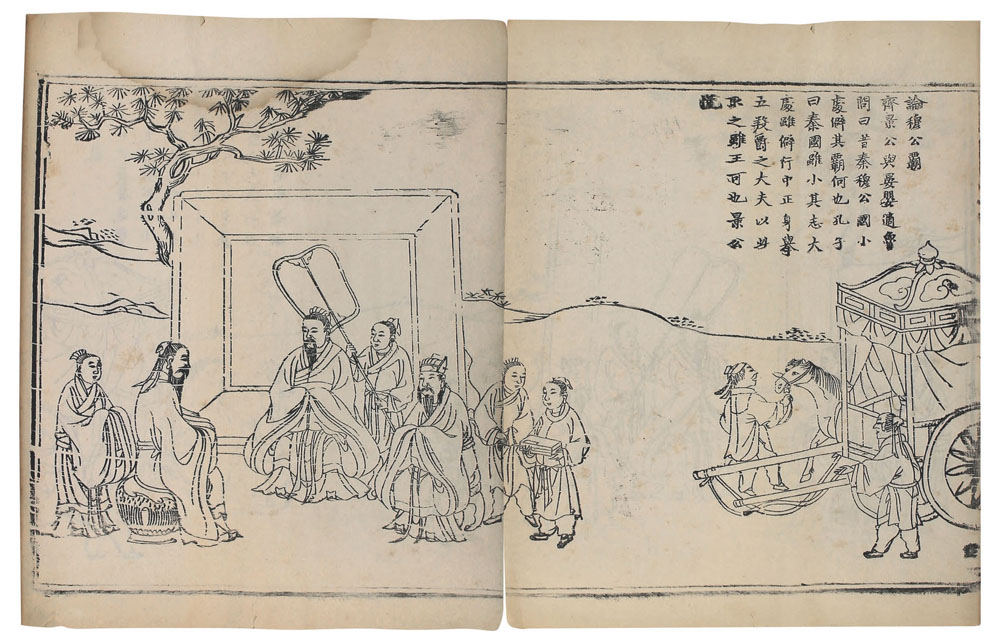 論穆公覇
齊景公與晏嬰適魯
問曰昔秦穆公國小
處僻其覇何也孔子
曰秦國雖小其志大
處雖僻行中正身舉
五羖爵之大夫以此
取之雖王可也景公
悅